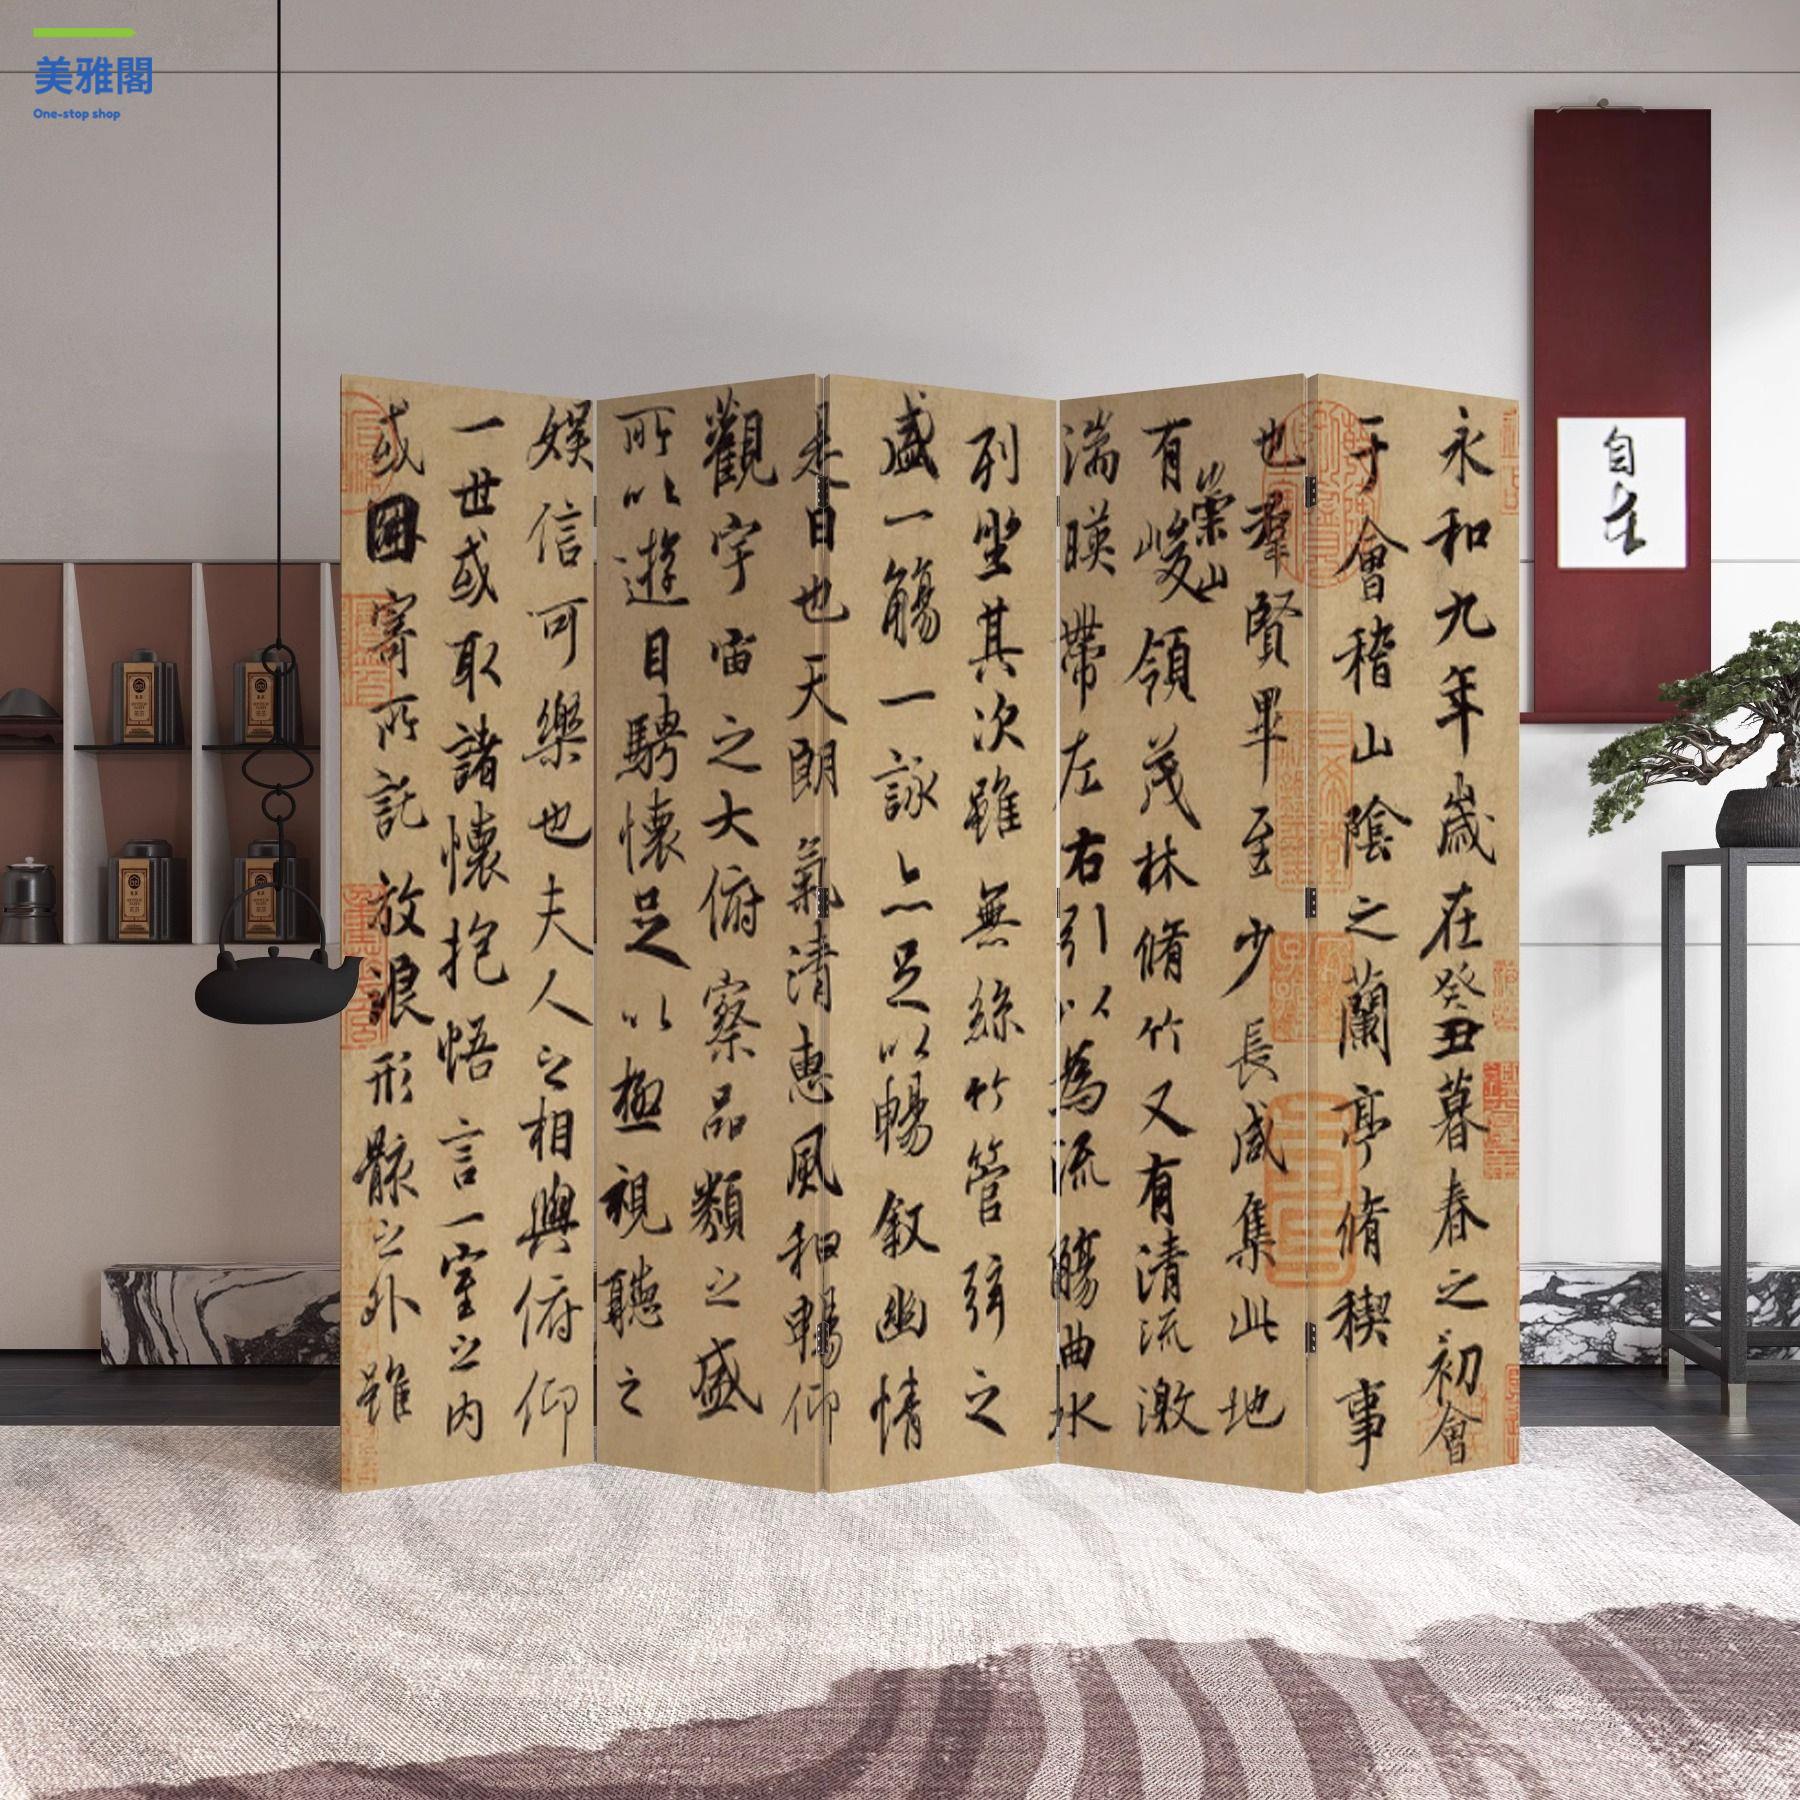 美雅閣
One-stop shop
永和九年歲在癸丑暮春之初會
于會稽山陰之蘭亭脩稧事
也羣賢畢至少長咸集此地
有崇山峻領茂林脩竹又有清流激
湍暎帶左右引以為流觴曲水
列坐其次雖無絲竹管弦之
盛一觴一詠亦足以暢敘幽情
是日也天朗氣清惠風和暢仰
觀宇宙之大俯察品類之盛
所以遊目騁懷足以極視聽之
娛信可樂也夫人之相與俯仰
一世或取諸懷抱悟言一室之內
或因寄所託放浪形骸之外雖
自在